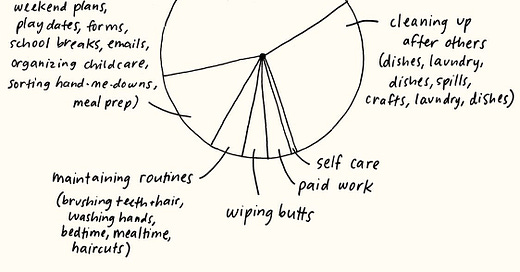 weekend plans,
play dates, forms,
school breaks, emails,
organizing childcare,
sorting hand-me-downs,
meal prep)
cleaning up
after others
(dishes, laundry,
dishes, spills,
crafts, laundry, dishes)
self care
paid work
wiping butts
maintaining routines
(brushing teeth+hair,
washing hands,
bedtime, mealtime,
haircuts)